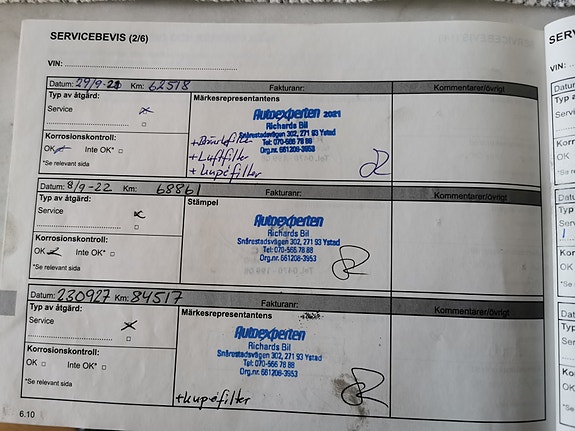 SERVICEBEVIS (2/6)
VIN:
Datum: 29/9-21 Km: 62518 Fakturanr: Kommentarer/övrigt
Typ av åtgärd: Märkesrepresentantens
Service x
Autoexperten 2021
Richards Bil
Snårestadsvägen 302, 271 93 Ystad
Tel: 070-566 78 88
Org.nr. 661208-3953
+Luftfilter
+kupéfilter
Korrosionskontroll:
OK Inte OK*
*Se relevant sida
Datum: 8/9-22 Km: 68861 Fakturanr: Kommentarer/övrigt
Typ av åtgärd: Stämpel
Service x
Autoexperten
Richards Bil
Snårestadsvägen 302, 271 93 Ystad
Tel: 070-566 78 88
Org.nr. 661208-3953
Korrosionskontroll:
OK Inte OK*
*Se relevant sida
Datum: 230927 Km: 84517 Fakturanr: Kommentarer/övrigt
Typ av åtgärd: Märkesrepresentantens
Service x
Autoexperten
Richards Bil
Snårestadsvägen 302, 271 93 Ystad
Tel: 070-566 78 88
Org.nr. 661208-3953
Korrosionskontroll:
OK Inte OK*
*Se relevant sida
+kupéfilter
6.10